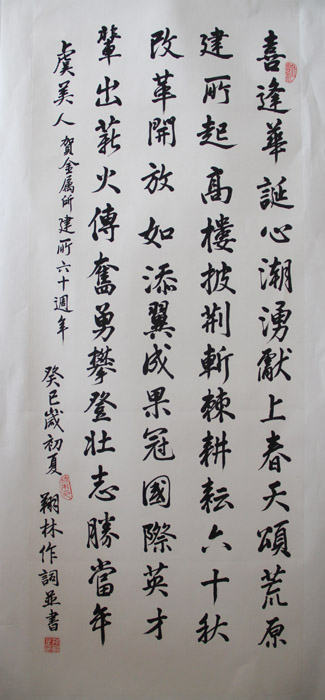 喜逢華誕心潮湧獻上春天頌荒原
建所起高樓披荆斬棘耕耘六十秋
改革開放如添翼成果冠國際英才
輩出薪火傳奮勇攀登壯志勝當年
虞美人 賀金属所建所六十週年
癸巳歲初夏 翔林作詞並書